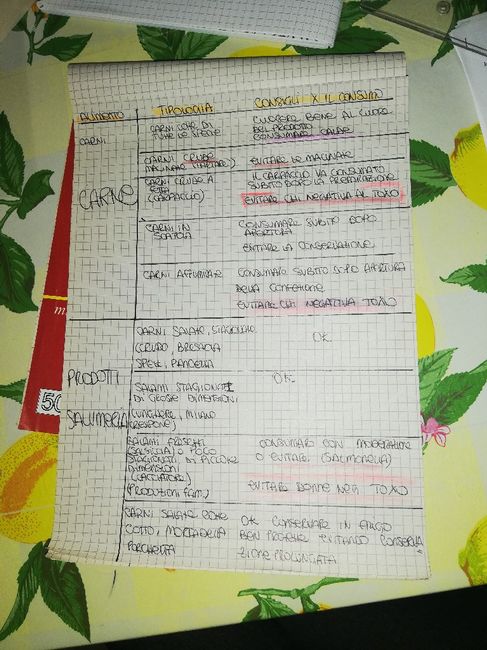 ALIMENTO TIPOLOGIA CONSIGLI X IL CONSUMO
CARNI
CARNE
CARNI COTTE DI
TUTTE LE SPECIE
CUOCERE BENE AL CUORE
DEL PRODOTTO
CONSUMARE CALDE
CARNI CRUDE
MACINATE (TARTARE)
EVITARE LE MACINATE
CARNI CRUDE A
FETTE
(CARPACCIO)
IL CARPACCIO VA CONSUMATO
SUBITO DOPO LA PREPARAZIONE
EVITARE CHI NEGATIVA AL TOXO
CARNI IN
SCATOLA
CONSUMARE SUBITO DOPO
APERTURA
EVITARE LA CONSERVAZIONE
CARNI AFFUMICATE
CONSUMARE SUBITO DOPO APERTURA
DELLA CONFEZIONE
EVITARE CHI NEGATIVA TOXO
PRODOTTI
SALUMERIA
CARNI SALATE, STAGIONATE
(CRUDO, BRESAOLA
SPECK, PANCETTA
OK
SALAMI STAGIONATI
DI GROSSE DIMENSIONI
(UNGHERE, MILANO
CRESPONE)
OK
SALAMI FRESCHI
(SALSICCIA) O POCO
STAGIONATI DI PICCOLE
DIMENSIONI
(CACCIATORE)
(PRODUZIONI FAM.)
CONSUMARE CON MODERAZIONE
O EVITARE (SALMONELLA)
EVITARE DONNE NEG TOXO
CARNI SALATE COTTE
COTTO, MORTADELLA
PORCHETTA
OK CONSERVARE IN FRIGO
BEN PROTETTE EVITANDO CONSERVA
ZIONE PROLUNGATA